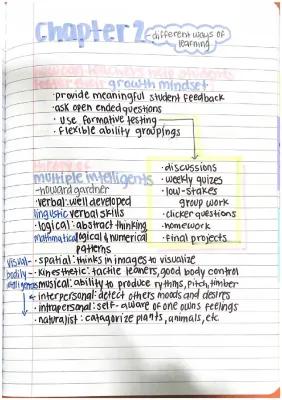 Chapter 2
different ways of
learning
How can teachers help students
foster their growth mindset
· provide meaningful student feedback
· ask open ended questions
· use formative testing
· flexible ability groupings
· discussions
· weekly quizes
· low-stakes
group work
· clicker questions
· homework
· Final projects
theory of
multiple intelligents
-howard gardner
· verbal: well developed
linguistic verbal skills
· logical: abstract thinking
mathmatical logical & numerical
patterns
visual- · spatial: thinks in images to visualize
bodily- · kinesthetic: tactile leaners, good body control
intelligences musical: ability to produce rythms, pitch, timber
· interpersonal: detect others moods and desires
· intrapersonal: self-aware of one owns feelings
· naturalist: catagorize plants, animals, etc